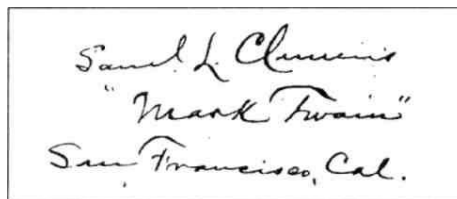 Saml. L. Clemens
"Mark Twain"
San Francisco, Cal.